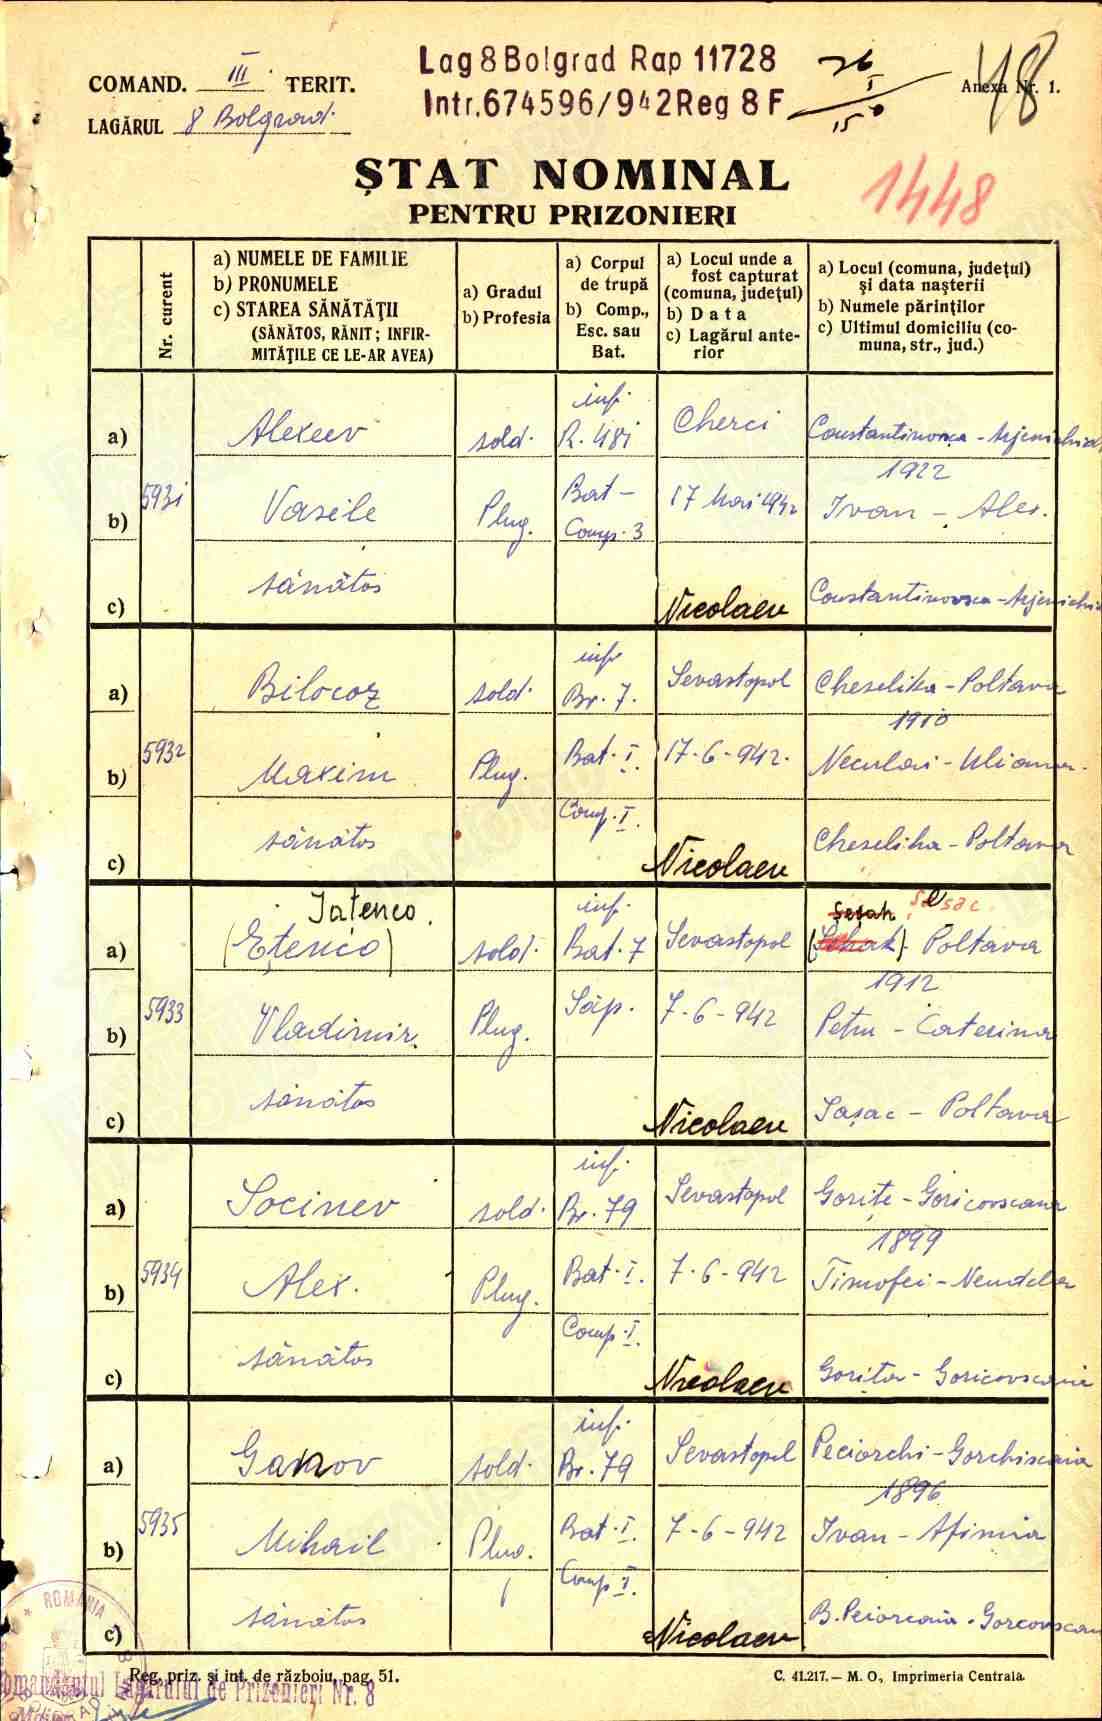 COMAND. III TERIT.
LAGĂRUL 8 Bolgrad.
Lag 8 Bolgrad Rap 11728
Intr. 674596/942 Reg 8 F
Anexa Nr. 1.
48
ȘTAT NOMINAL
PENTRU PRIZONIERI
1448
Nr. curent
a) NUMELE DE FAMILIE
b) PRONUMELE
c) STAREA SĂNĂTĂȚII
(SĂNĂTOS, RĂNIT; INFIR-
MITĂȚILE CE LE-AR AVEA)
a) Gradul
b) Profesia
a) Corpul
de trupă
b) Comp.,
Esc. sau
Bat.
a) Locul unde a
fost capturat
(comuna, județul)
b) Data
c) Lagărul ante-
rior
a) Locul (comuna, județul)
și data nașterii
b) Numele părinților
c) Ultimul domiciliu (co-
muna, str., jud.)
5931
a) Alexeev sold. inf. R. 481 Cherci
1922
b) Vasile Plug. Bat - Comp. 3 17 Mai 1942 Ivan - Alex.
c) sănătos Nicolaev
5932
a) Bilocoz sold. inf Br. 7. Sevastopol Cheselika - Poltava
1910
b) Maxim Plug. Bat. I. 17-6-942. Neculai -
Comp. I.
c) sănătos Nicolaev Cheseliha - Poltava
5933
Iatenco.
a) (Ețenco) sold. inf. Bat. 7 Sevastopol Poltava
1912
b) Vladimir. Plug. Săp. 7-6-942 Petru - Caterina
c) sănătos Nicolaev Sașac - Poltava
5934
a) Socinev sold. inf. Br. 79 Sevastopol Gorițe - Goricovscaia
1899
b) Alex. Plug. Bat. I. 7-6-942 Timofei -
Comp. I.
c) sănătos Nicolaev Gorița - Goricovscaia
5935
a) Ganov sold. inf. Br. 79 Sevastopol Peciorchi - Gorchiscaia
1896
b) Mihail Plug. Bat. I. 7-6-942 Ivan - Afimia
Comp I.
c) sănătos Nicolaev
Reg. priz. și int. de războiu, pag. 51.
C. 41.217. — M. O., Imprimeria Centrala.
ROMANIA
Comandantul Lagărului de Prizonieri Nr. 8